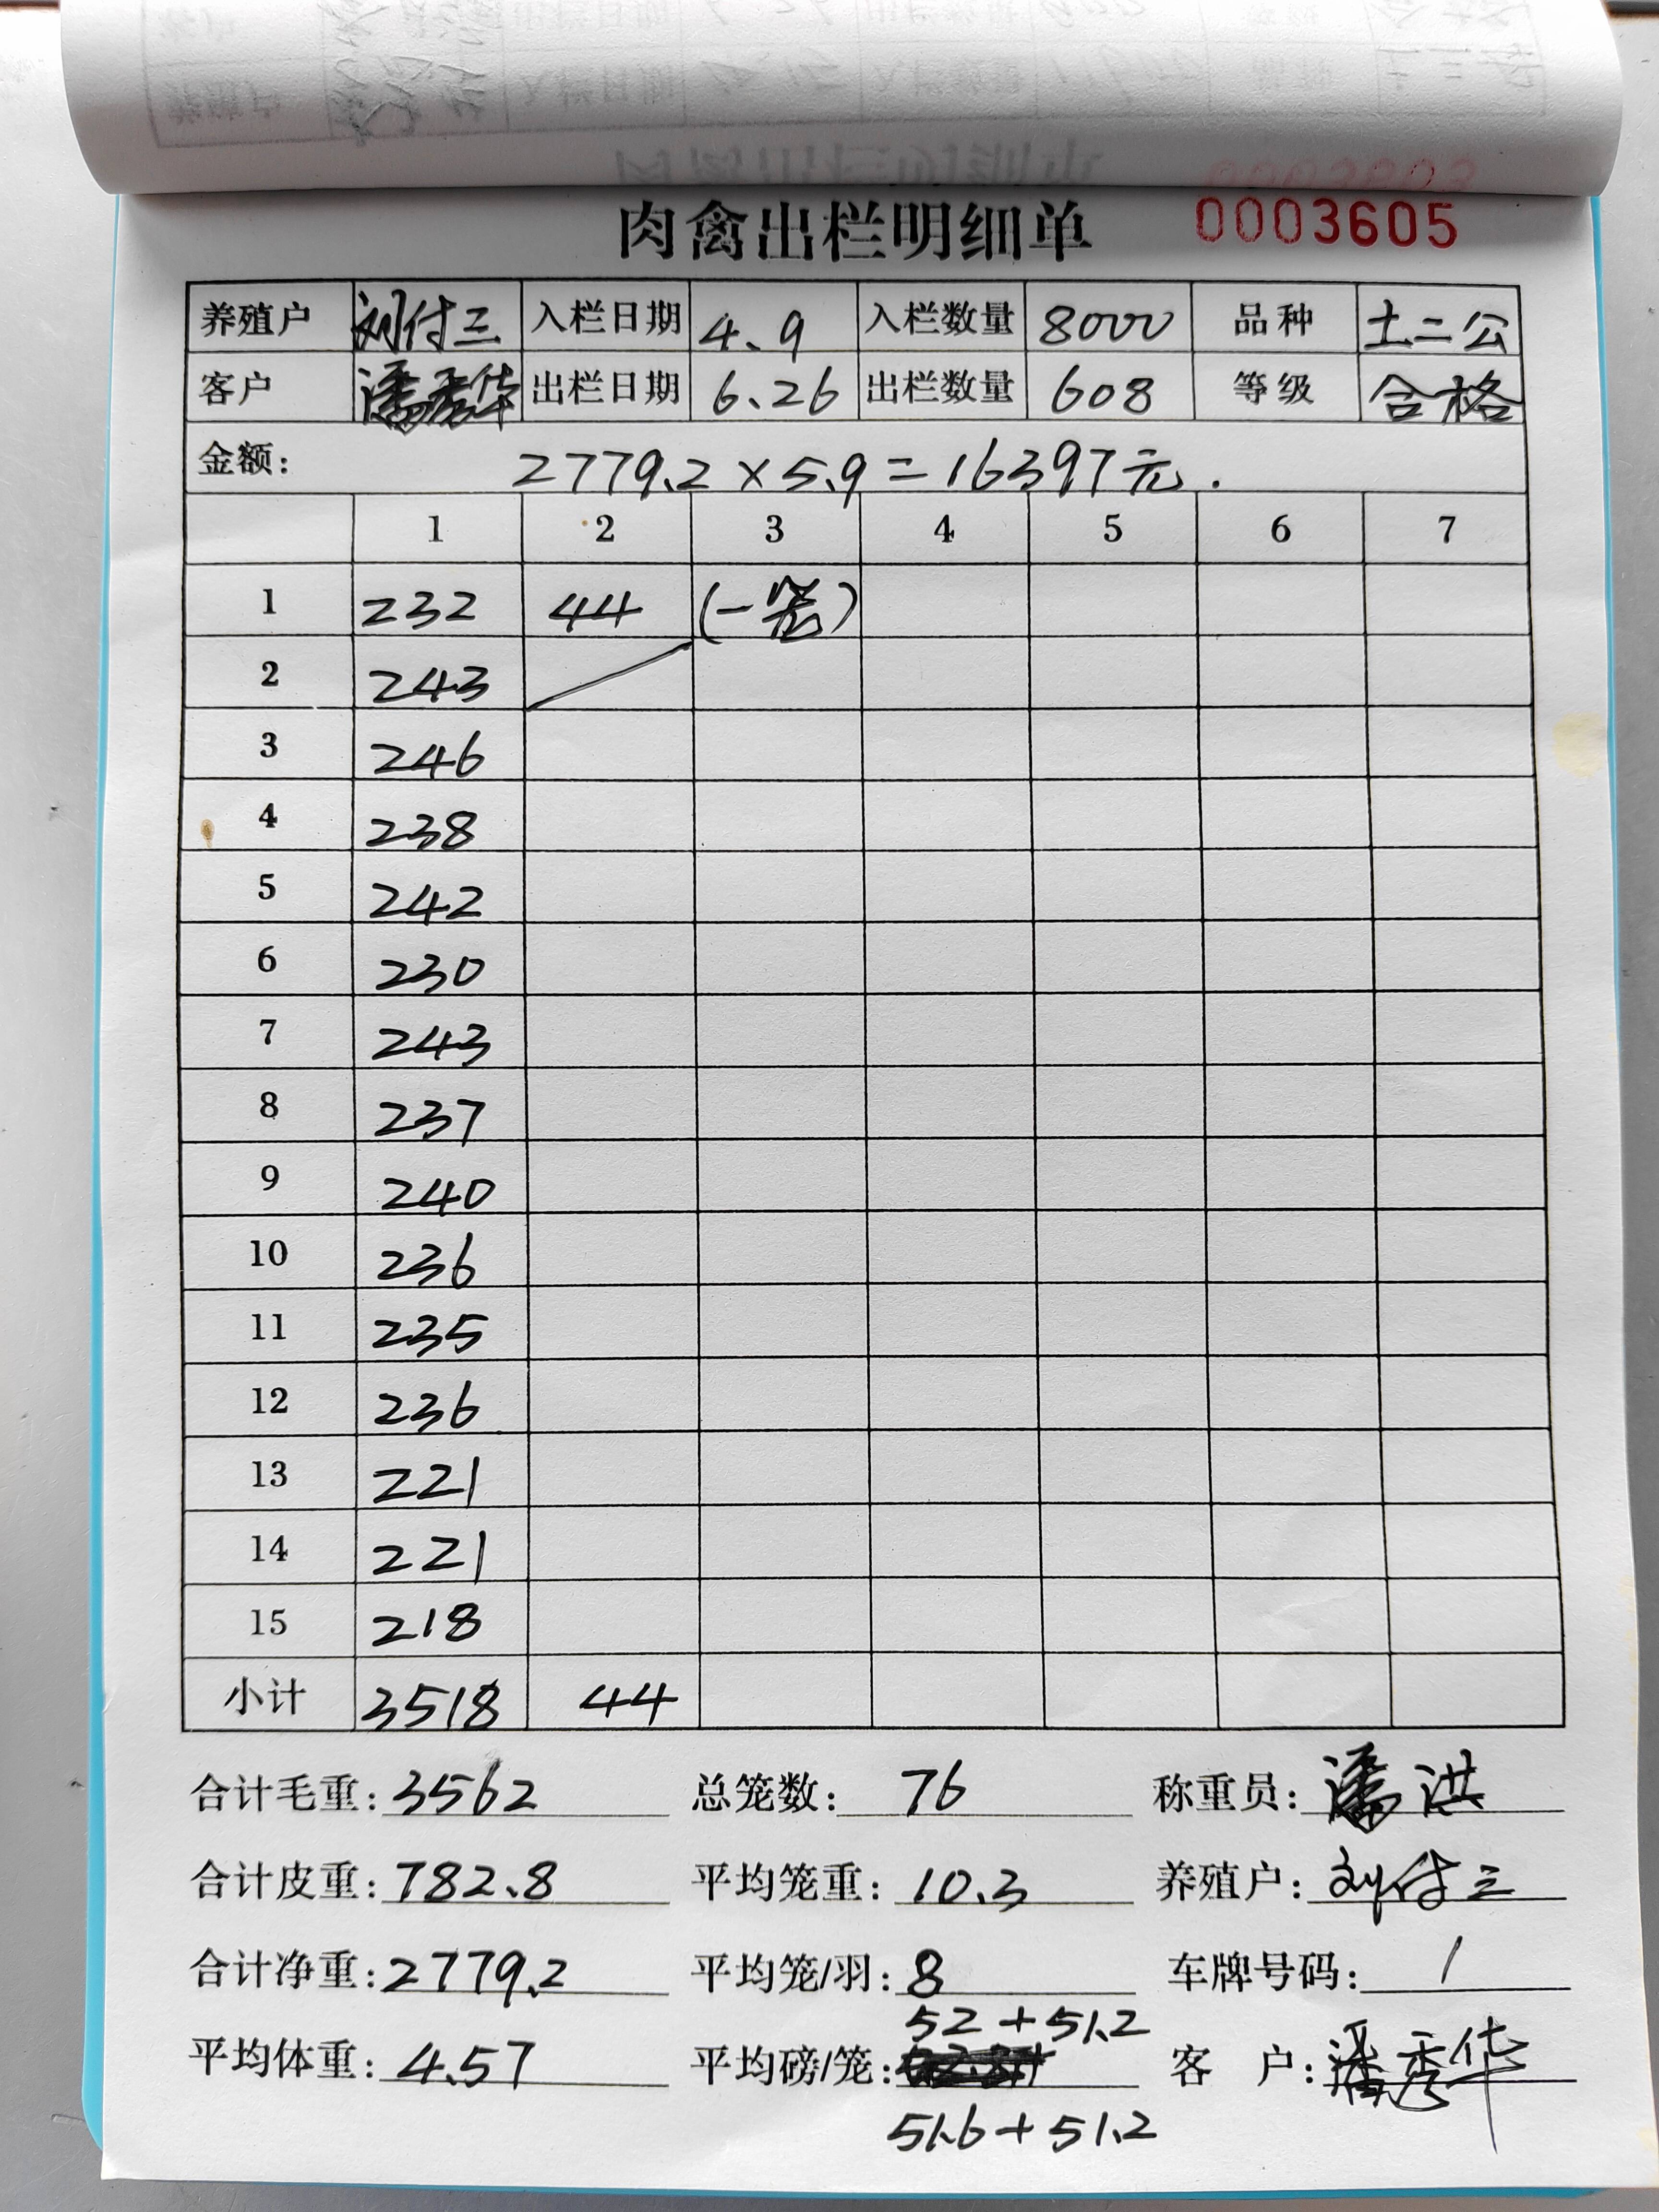 肉禽出栏明细单 0003605
养殖户 刘付三 入栏日期 4.9 入栏数量 8000 品种 土二公
客户 潘秀华 出栏日期 6.26 出栏数量 608 等级 合格
金额: 2779.2×5.9=16397元.
1 2 3 4 5 6 7
1 232 44 (一笼)
2 243
3 246
4 238
5 242
6 230
7 243
8 237
9 240
10 236
11 235
12 236
13 221
14 221
15 218
小计 3518 44
合计毛重: 3562 总笼数: 76 称重员: 潘洪
合计皮重: 782.8 平均笼重: 10.3 养殖户: 刘付三
合计净重: 2779.2 平均笼/羽: 8 车牌号码: 1
52+51.2
平均体重: 4.57 平均磅/笼: 客户: 潘秀华
51.6+51.2